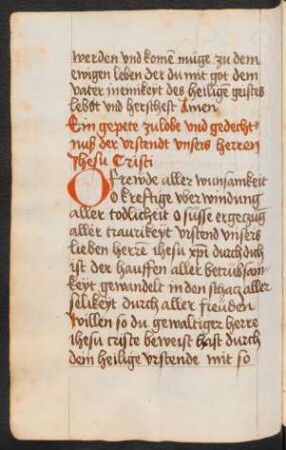 werden vnd komē müge zu dem
ewigen leben der du mit got dem
vater in einikeyt des heiligē geistes
lebst vnd herschest Amen
Ein gepete zu lobe vnd gedecht-
nuß der vrstendt vnsers herren
Jhesu Cristi
O frewde aller wunsamkeit
O kreftige vberwindung
aller todlicheit o süsse ergeczūg
aller traurikeyt vrstend vnsers
lieben herrē ihesu xp̄i durch dich
ist der hauffen aller betrubsam-
keyt gewandelt in den schacz aller
selikeyt durch aller freuden
willen so du gewaltiger herre
ihesu criste beweist hast durch
dem heilige vrstende mit so